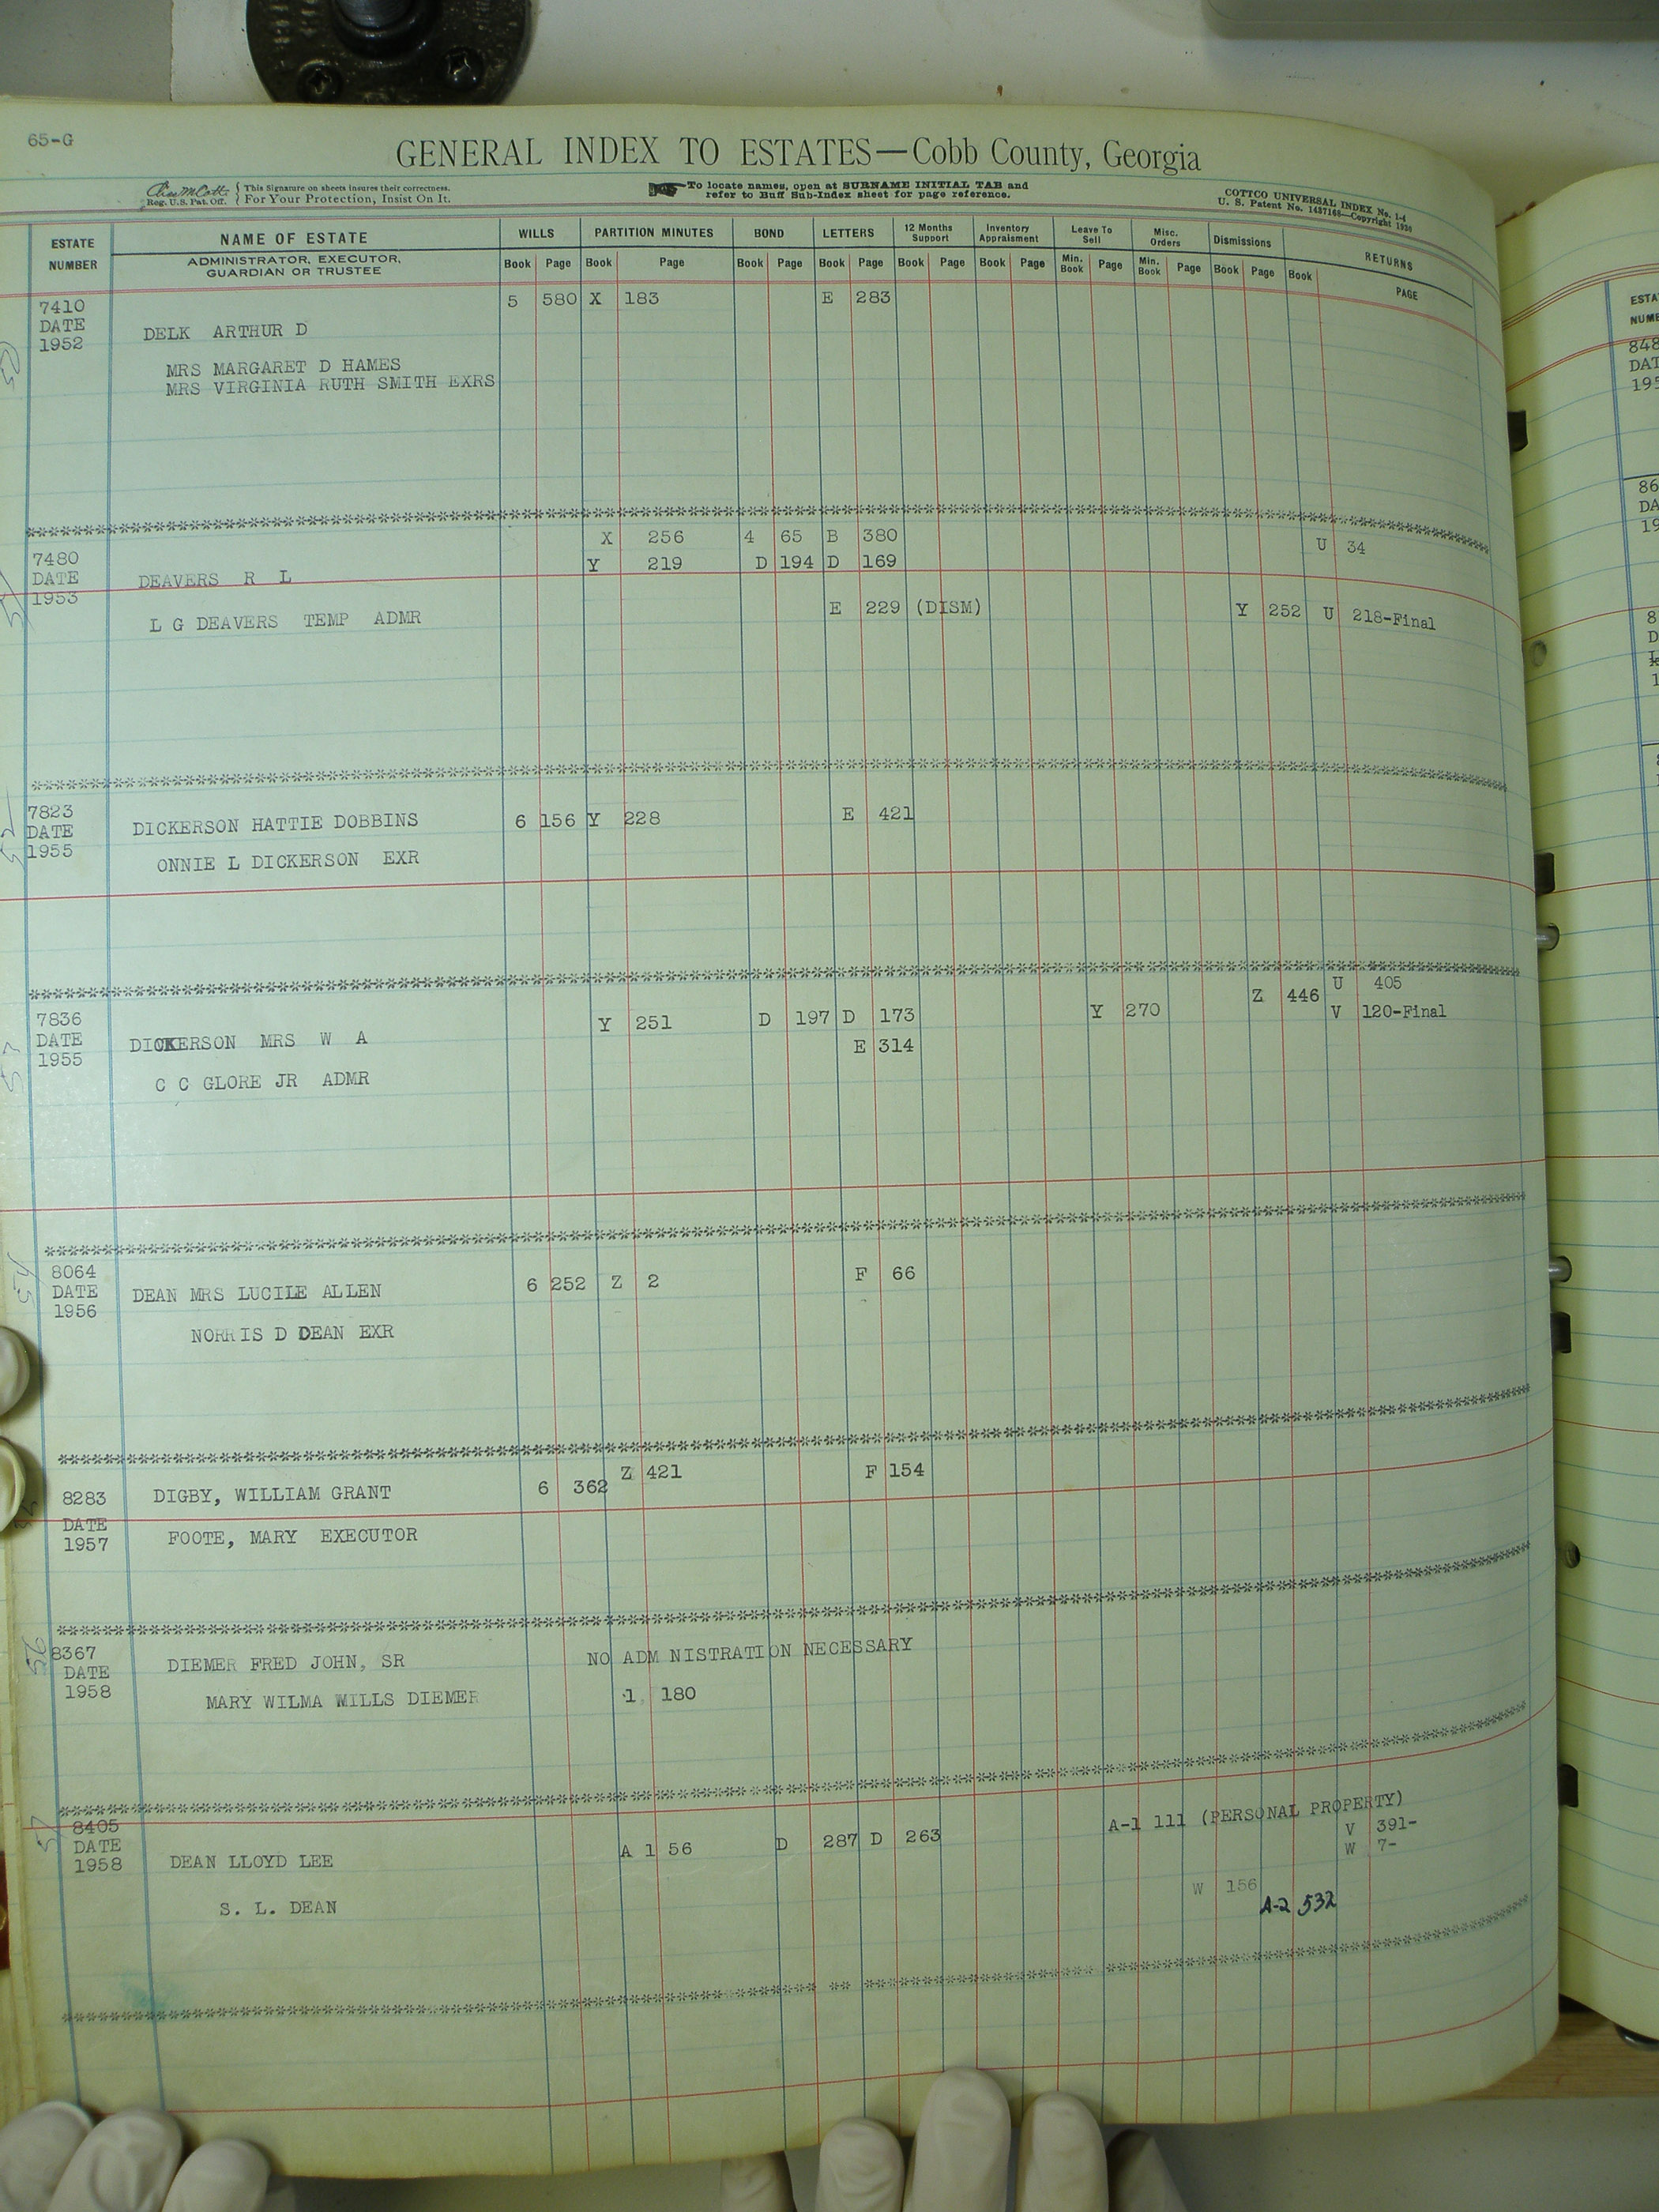 65-G
GENERAL INDEX TO ESTATES—Cobb County, Georgia
This Signature on sheets insures their correctness.
Reg. U.S. Pat. Off. For Your Protection, Insist On It.
To locate names, open at SURNAME INITIAL TAB and
refer to Buff Sub-Index sheet for page reference.
COTTCO UNIVERSAL INDEX No. 1-4
U. S. Patent No. 1437168—Copyright 1936
ESTATE NUMBER NAME OF ESTATE WILLS PARTITION MINUTES BOND LETTERS 12 Months Support Inventory Appraisment Leave To Sell Misc. Orders Dismissions RETURNS
ADMINISTRATOR, EXECUTOR, GUARDIAN OR TRUSTEE Book Page Book Page Book Page Book Page Book Page Book Page Min. Book Page Min. Book Page Book Page Book PAGE
7410 5 580 X 183 E 283
DATE
DELK ARTHUR D
1952
MRS MARGARET D HAMES
MRS VIRGINIA RUTH SMITH EXRS
X 256 4 65 B 380 U 34
7480 Y 219 D 194 D 169
DATE DEAVERS R L
1953 E 229 (DISM) Y 252 U 218-Final
L G DEAVERS TEMP ADMR
7823
DATE DICKERSON HATTIE DOBBINS 6 156 Y 228 E 421
1955
ONNIE L DICKERSON EXR
Z 446 U 405
7836 Y 251 D 197 D 173 Y 270 V 120-Final
DATE DICKERSON MRS W A E 314
1955
C C GLORE JR ADMR
8064
DATE DEAN MRS LUCILE ALLEN 6 252 Z 2 F 66
1956
NORRIS D DEAN EXR
Z 421 F 154
8283 DIGBY, WILLIAM GRANT 6 362
DATE
1957 FOOTE, MARY EXECUTOR
8367 NO ADM NISTRATION NECESSARY
DATE DIEMER FRED JOHN, SR
1958 MARY WILMA MILLS DIEMER 1 180
8405 A-1 111 (PERSONAL PROPERTY)
DATE A 1 56 D 287 D 263 V 391-
1958 DEAN LLOYD LEE W 7-
W 156
S. L. DEAN A-2 532
ESTA
NUME
848
DAT
195
86
DA
19